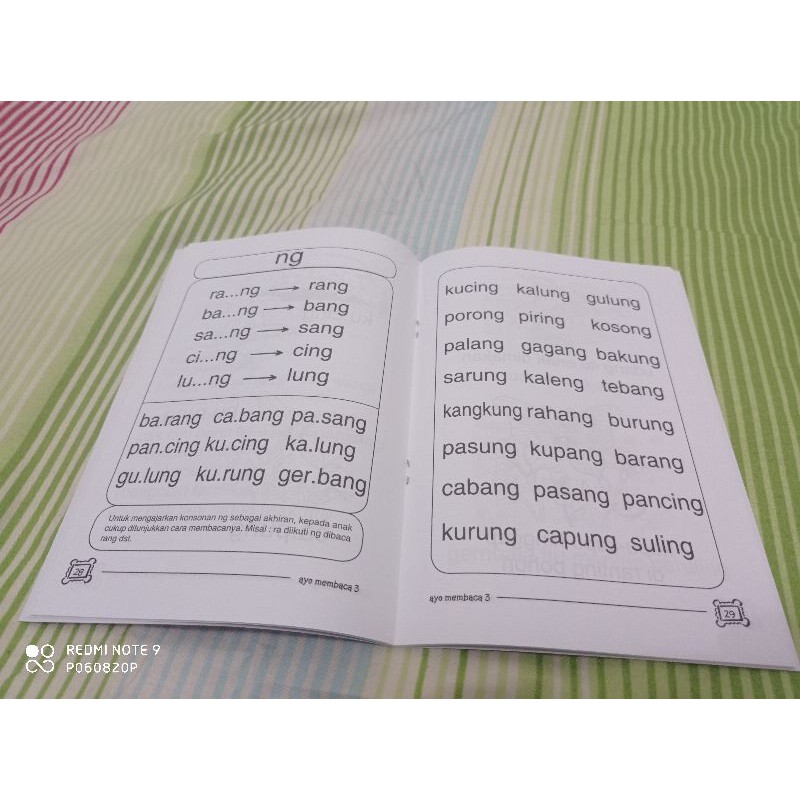 ng
ra...ng → rang
ba...ng → bang
sa...ng → sang
ci...ng → cing
lu...ng → lung
ba.rang ca.bang pa.sang
pan.cing ku.cing ka.lung
gu.lung ku.rung ger.bang
Untuk mengajarkan konsonan ng sebagai akhiran, kepada anak
cukup ditunjukkan cara membacanya. Misal : ra diikuti ng dibaca
rang dst.
28
ayo membaca 3
kucing kalung gulung
porong piring kosong
palang gagang bakung
sarung kaleng tebang
kangkung rahang burung
pasung kupang barang
cabang pasang pancing
kurung capung suling
ayo membaca 3
29
REDMI NOTE 9
P060820P